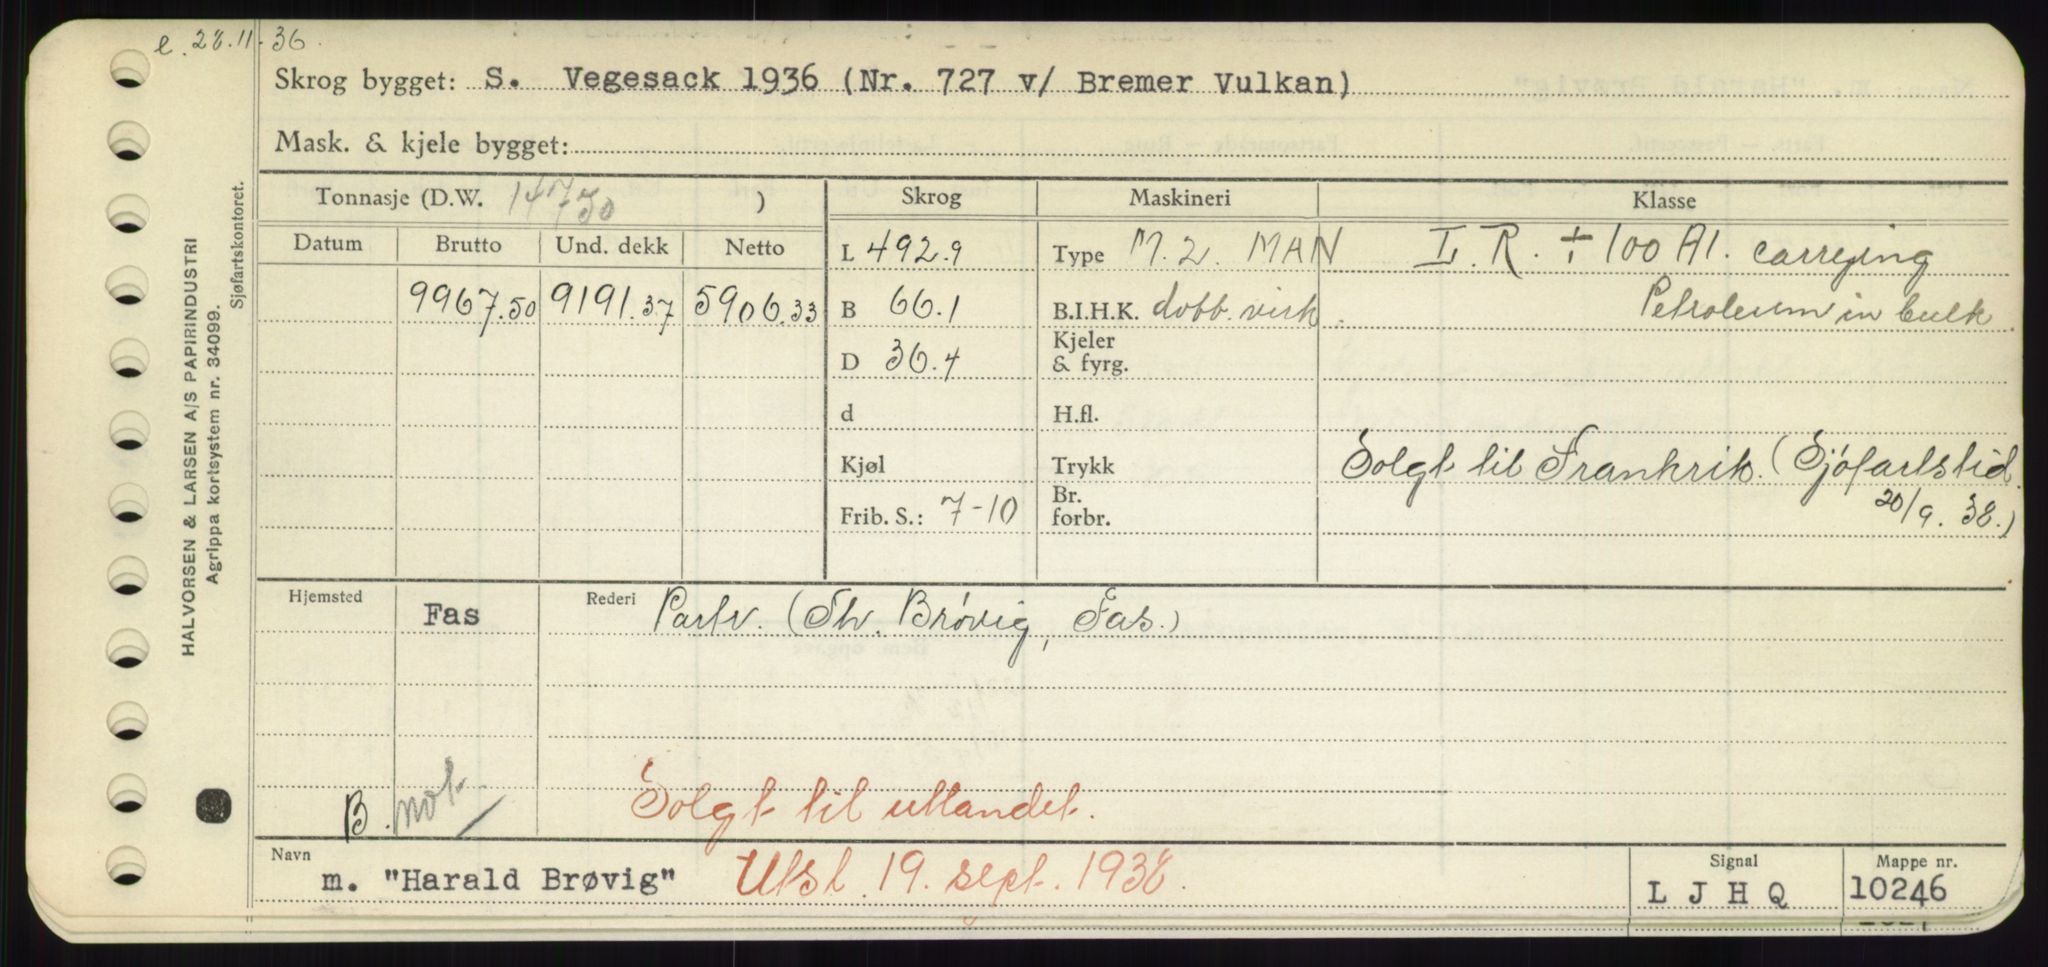 e. 28.11.36.
Skrog bygget: S. Vegesack 1936 (Nr. 727 v/ Bremer Vulkan)
Mask. & kjele bygget:
Tonnasje (D.W. 14730 )
Skrog
Maskineri
Klasse
Datum Brutto Und. dekk Netto
L 492.9
Type M. 2. MAN
L. R. + 100 A1. carrying
9967.50 9191.37 5906.33
B 66.1
B.I.H.K. dobb. virk.
Petroleum in bulk
D 36.4
Kjeler
& fyrg.
d
H.fl.
Kjøl
Trykk
Solgt til Frankrik. (Sjøfartstid.
20/9. 38.)
Frib. S.: 7-10
Br.
forbr.
Hjemsted Fas
Rederi Partr. (Th. Brøvig, Fas.)
B. not.
Solgt til utlandet.
Navn
m. "Harald Brøvig" Utsl. 19. sept. 1938.
Signal
L J H Q
Mappe nr.
10246
HALVORSEN & LARSEN A/S PAPIRINDUSTRI
Agrippa kortsystem nr. 34099.
Sjøfartskontoret.